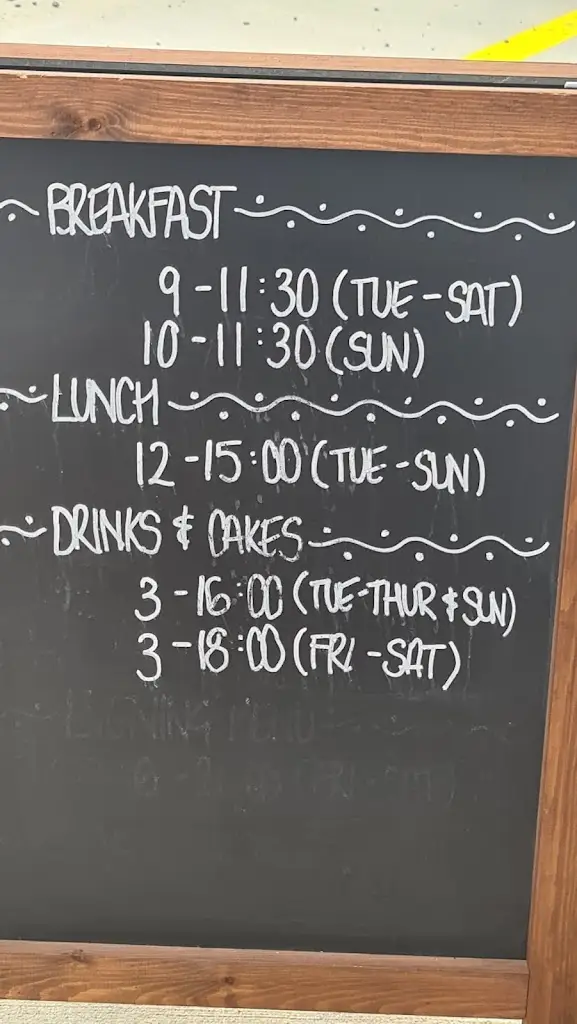 BREAKFAST
9-11:30 (TUE-SAT)
10-11:30 (SUN)
LUNCH
12-15:00 (TUE-SUN)
DRINKS & CAKES
3-16:00 (TUE-THUR & SUN)
3-18:00 (FRI-SAT)